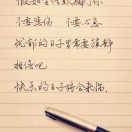 假如生活欺骗了你
不要悲伤 不要心急
忧郁的日子里需要镇静
相信吧
快乐的日子将会来临